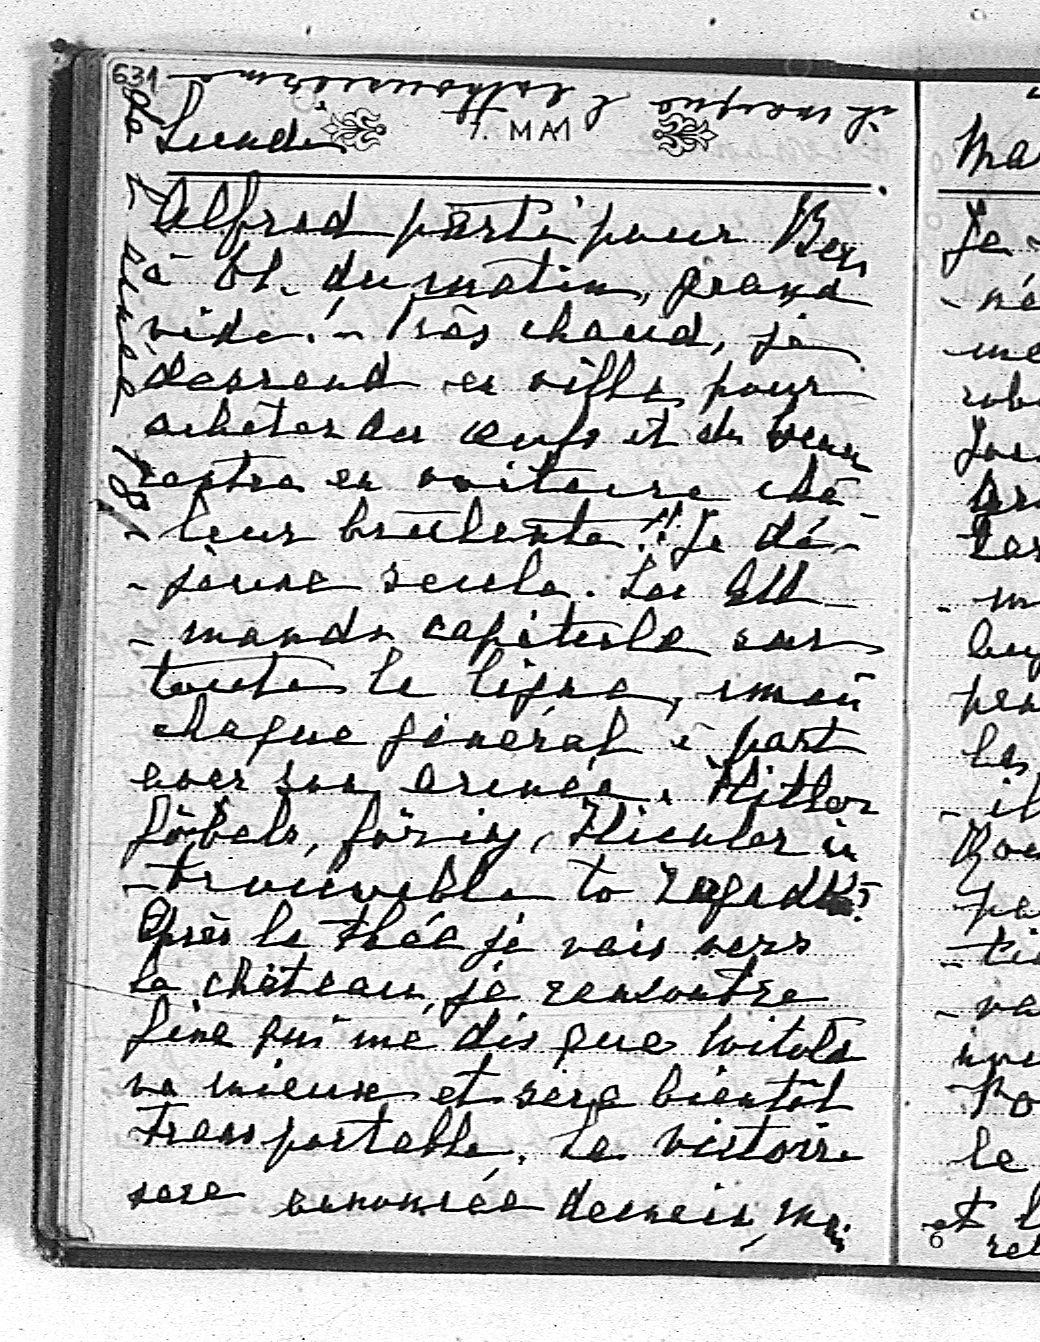 631
Lundi 7. MAI
Alfred parti pour Bex
à 6h. du matin, grand
vide! - Très chaud, je
dessend en ville pour
acheter des œufs et du
rentre en voiture cha-
-leur brulente!! Je dé-
-jeune seule. Les All-
-mands capitule sur
toute la ligne, mai
chaque général à part
avec son armée. Hitler
Göbels, Göring, Himler in
-trouvable
Après le thée je vais vers
le château, je rencontre
Line qui me dis que Witold
va mieux et sera bientôt
transportable. La victoire
sera anoncée demain, mai
il manque l'enthousiasme
Ma
Je
- né
me
robe
- m
pen
les
- il
pa
- ti
- va
le
et l
6